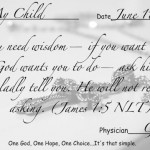 My Child Date June 1
u need wisdom — if you want
God wants you to do — ask hi
gladly tell you. He will not re
asking. (James 1:5 NLT
Physician
One God, One Hope, One Choice...It's that simple.